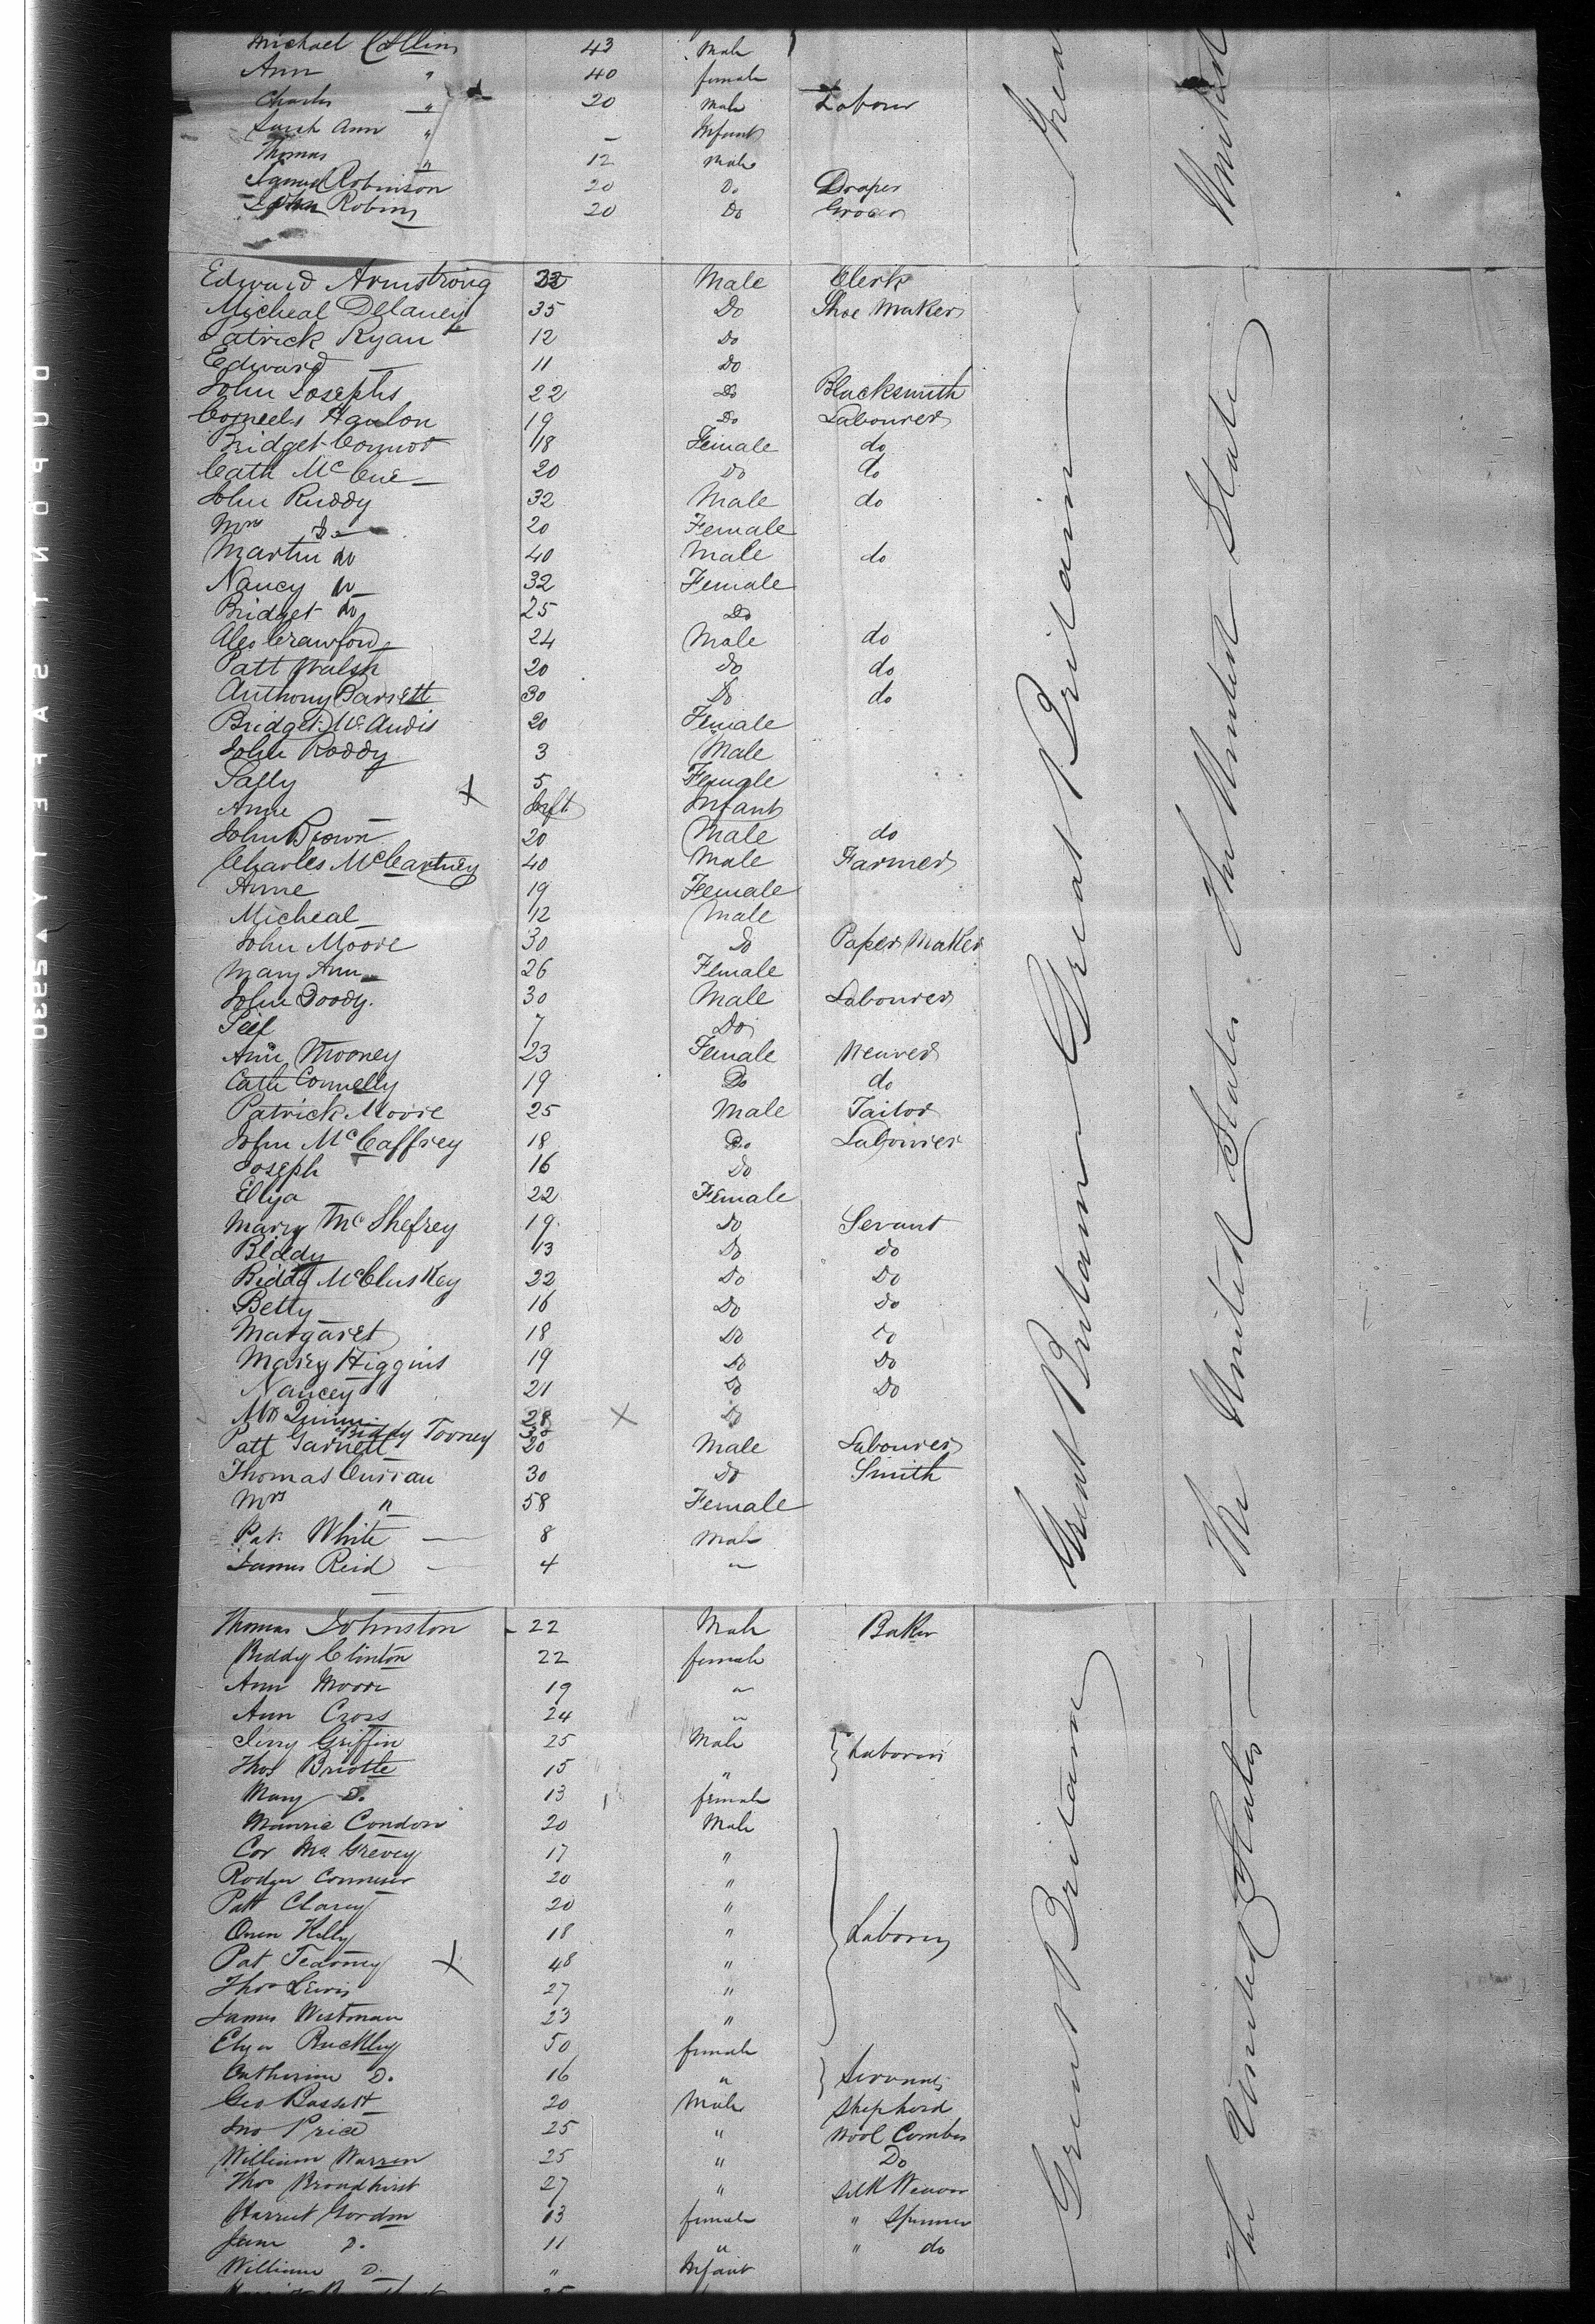 Michael Collins 43 Male
Ann " 40 female
Charles " 20 Male Labour
Sarah Ann " - Infant
Thomas " 12 Male
Samuel Robinson 20 Do Draper
John Robins 20 Do Grocer
Edward Armstrong 22 Male Clerk
Micheal Delaney 35 Do Shoe Maker
Patrick Ryan 12 Do
Edward — 11 Do
John Josephs 22 Do Blacksmith
Corneels Hanlon 19 Do Labourer
Bridget Connor 18 Female do
Cath McCue 20 Do do
John Ruddy 32 Male do
Mrs Do 20 Female
Martin do 40 Male do
Nancy do 32 Female
Bridget do 25 Do
Alex Crawford 24 Male do
Patt Walsh 20 Do do
Anthony Barrett 30 Do do
Bridget McAndis 20 Female
John Roddy 3 Male
Sally 5 Female
Anne Inft Infant
John Brown 20 Male do
Charles McCartney 40 Male Farmer
Anne 19 Female
Micheal 12 Male
John Moore 30 Do Paper Maker
Mary Ann 26 Female
John Doody 30 Male Labourer
7 Do
Ann Mooney 23 Female Weaver
Cath Connelly 19 Do do
Patrick Moore 25 Male Tailor
John McCaffrey 18 Do Labourer
Joseph 16 Do
Eliza 22 Female
Mary McShefrey 19 Do Servant
Biddy 13 Do Do
Biddy McCluskey 22 Do Do
Betty 16 Do Do
Margaret 18 Do Do
Mary Higgins 19 Do Do
Nancey 21 Do Do
Mrs Quinn 28 X Do
Biddy Tooney 30
Patt Garnett 20 Male Labourer
Thomas Curran 30 Do Smith
Mrs " 58 Female
Pat. White — 8 Male
James Reid — 4 "
Thomas Johnston 22 Male Baker
Biddy Clinton 22 female
Ann Moore 19 "
Ann Cross 24 "
Jerry Griffin 25 Male Laborers
Thos Bristle 15 "
Mary D. 13 female
Maurice Condon 20 Male
Cor McGrevey 17 "
Rodger 20 "
Patt Clarey 20 "
Owen Kelly 18 " Laborers
Pat Tearney X 48 "
Thos Lewis 27 "
James Westman 23 "
Eliza Buckley 50 female
Catherine D. 16 " Servants
Geo Bassett 20 Male Shepherd
Jno Price 25 " Wool Comber
William Warren 25 " Do
Thos Broadhirst 27 " Silk Weaver
Harriet Gordon 13 female " Spinner
Jane D. 11 " " do
William D. " Infant
Great Britain Great Britain
The United States The United State
Great Britain
The United States
United